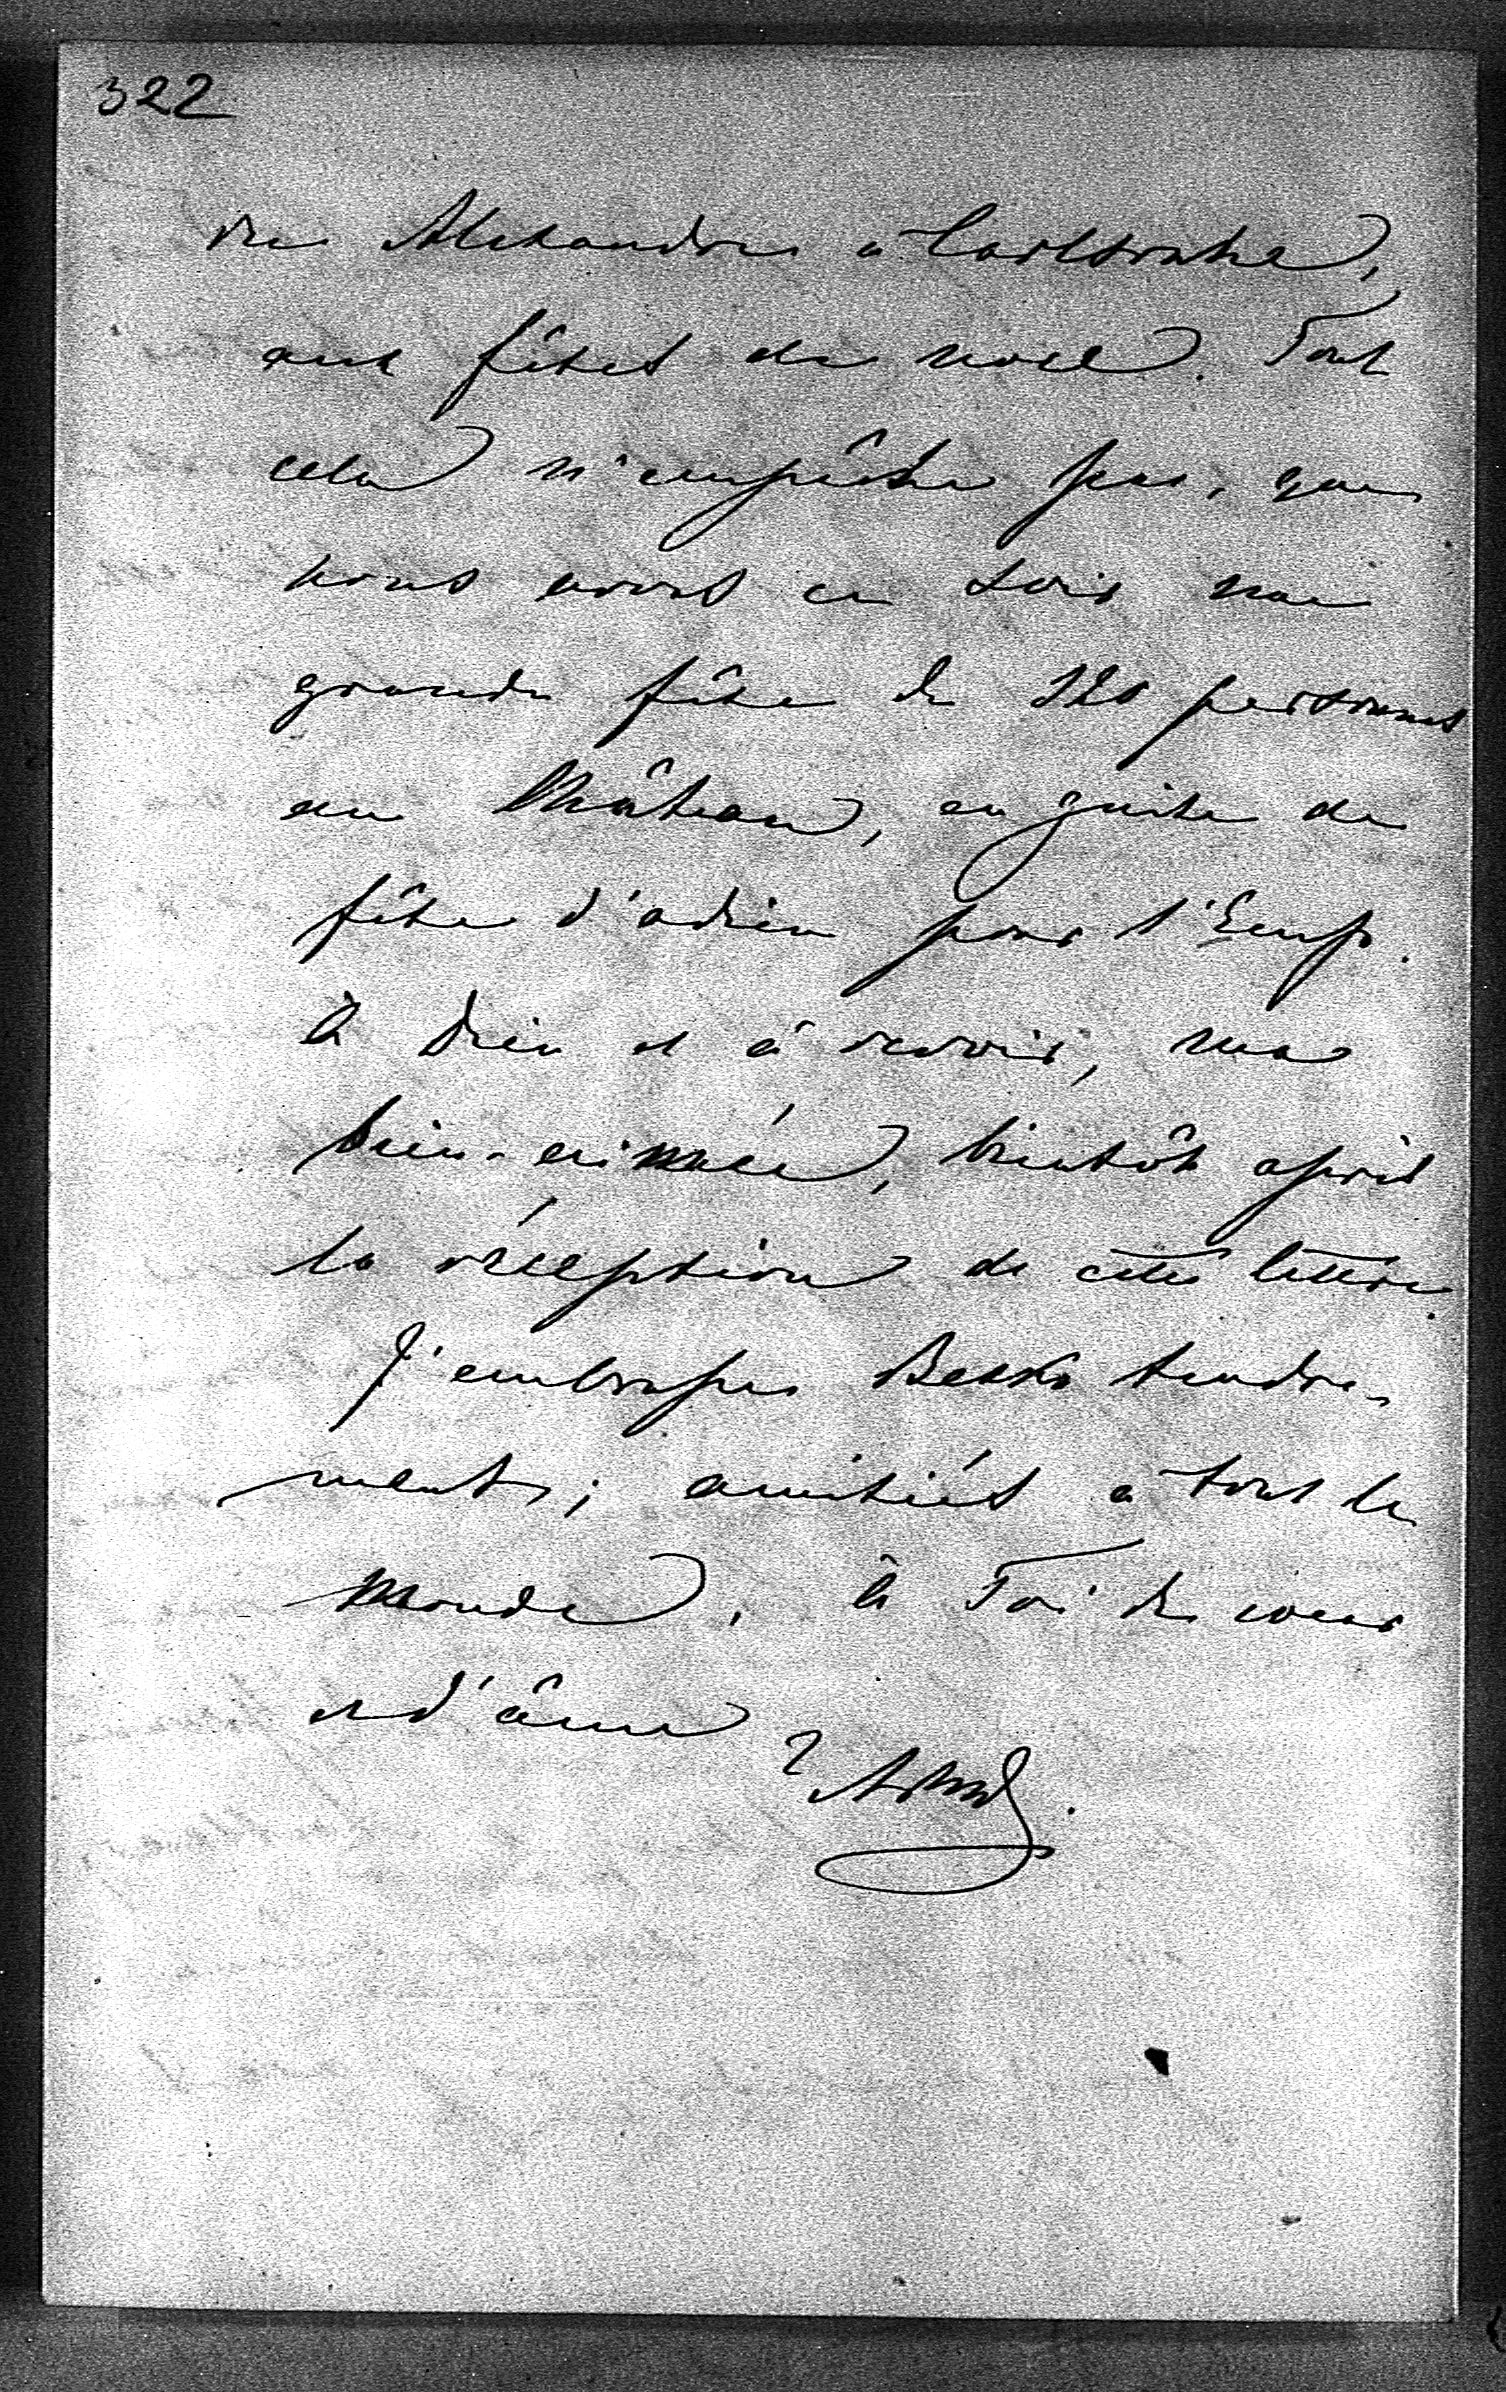 322
de Alexandre à Carlsruhe,
aux fêtes de noel. Tout
cela n'empêche pas, que
nous avons ce soir une
grande fête de personnes
au Château, en guise de
fête d'adieu pour l'Emp.
à Dieu et à revoir, ma
bien-aimée, bientôt après
la réception de cette lettre.
J'embrasse tendre-
ment; amitiés à tout le
monde. à Toi de coeur
et d'âme